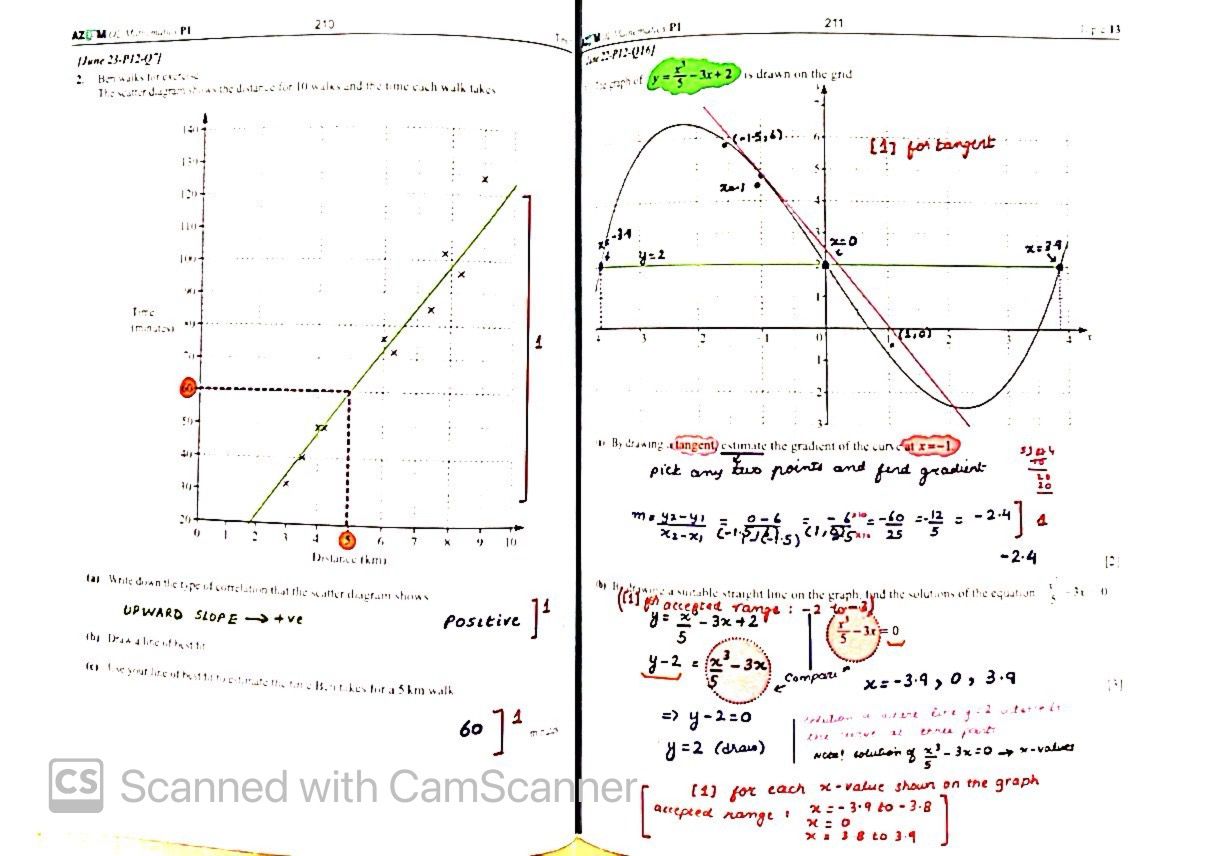 210
Mathematics P1
[June 23-P12-Q7]
2. Ben walks for exercise
The scatter diagram shows the distance for 10 walks and the time each walk takes
140
130
120
110
100
90
70
60
50
40
30
20
Time
(minutes)
0 1 2 3 4 5 6 7 8 9 10
Distance (km)
1
(a) Write down the type of correlation that the scatter diagram shows
UPWARD SLOPE → +ve
Positive ] 1
(b) Draw a line of best fit
(c) Use your line of best fit to estimate the time Ben takes for a 5 km walk
60 ] 1
CS Scanned with CamScanner
211
P1
13
22-P12-Q16]
the graph of y = x³/5 − 3x + 2 is drawn on the grid
(-1.5, 6)
[1] for tangent
x=-1
x=-3.9
y=2
x=0
x=3.9
(1,0)
(a) By drawing a tangent, estimate the gradient of the curve at x = −1
pick any two points and find gradient
m = y₂-y₁/x₂-x₁ = 0-6/ = -6/2.5 = -60/25 = -12/5 = -2.4 ] 1
(-1.5, 6) (1, 0)
-2.4
[2]
(b) By drawing a suitable straight line on the graph, find the solutions of the equation x³/5 − 3x = 0
([1] for accepted range : -2 to -3)
y = x³/5 - 3x + 2
x³/5 - 3x = 0
y-2 = x³/5 - 3x
Compare
x = -3.9 , 0 , 3.9
[3]
=> y-2=0
y=2 (draw)
Note! solution of x³/5 - 3x = 0 → x-values
[1] for each x-value shown on the graph
accepted range : x = -3.9 to -3.8
x = 0
x = 3.8 to 3.9